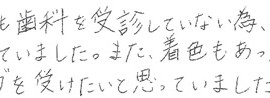 も歯科を受診していない為、
ていました。また、着色もあっ
グを受けたいと思っていました